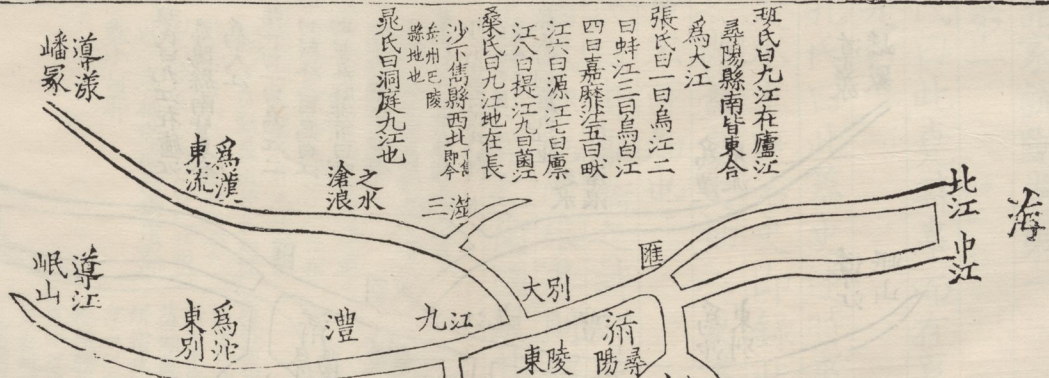 班氏曰九江在廬江
尋陽縣南皆東合
為大江
張氏曰一曰烏江二
曰蚌江三曰烏白江
四曰嘉靡江五曰畎
江六曰源江七曰廪
江八曰提江九曰菌江
桑氏曰九江地在長
沙下雋縣西北下雋即今
岳州巴陵
縣地也
晁氏曰洞庭九江也
海
北江
中江
匯
大別
三澨
滄浪
之水
東流
為漢
嶓冢
導漾
岷山
導江
東別
為沱
澧
九江
東陵
尋陽